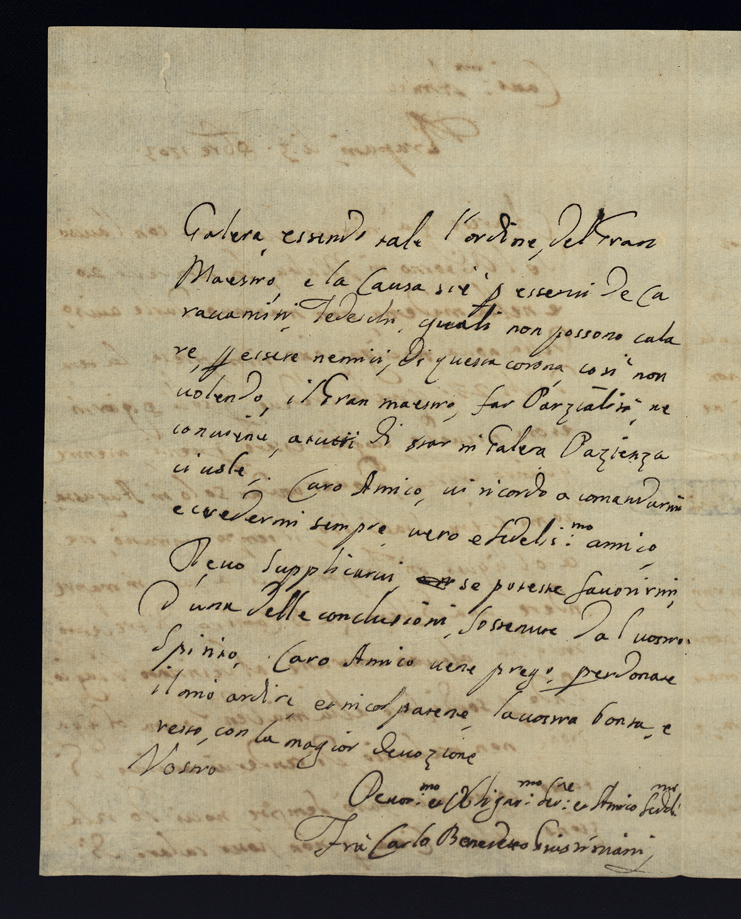 Galera, essendo tale l'ordine, del Gran
Maestro, e la Causa si è p esserui de Ca
rauanisti, Tedeschi, quali non possono cala
re, p essere nemici, di questa corona, cosi non
uolendo, il Gran maestro, far Parzialità, ne
conuiene, a tutti di star in Galera Pazienza
ci uole, Caro Amico, ui ricordo a comandarmi
e credermi sempre, uero e fedelis:mo amico,
Deuo Supplicarui, se potesse fauorirmi,
d'una delle conclusioni, sostenute dal uostro
Spirito, Caro Amico uene prego, perdonate
il mio ardire et incolpatene, la uostra bonta, e
resto, con la magior deuozione
Vostro
Deuot:mo et Obligat:mo Ser:re et Amico fedel:mo
Frà Carlo Benedetto Giustiniani,